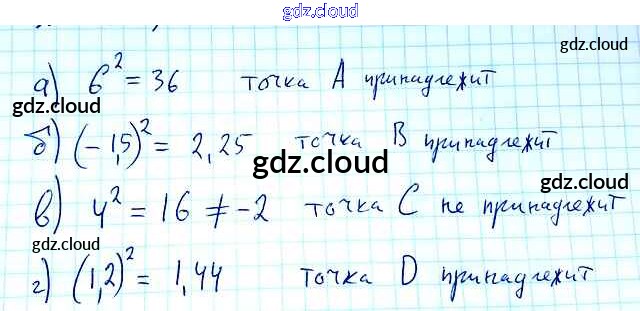 gdz.cloud
gdz.cloud
а) 6² = 36 точка А принадлежит
gdz.cloud
б) (-1,5)² = 2,25 точка В принадлежит
gdz.cloud
gdz.cloud
в) 4² = 16 ≠ -2 точка С не принадлежит
gdz.cloud
г) (1,2)² = 1,44 точка D принадлежит
gdz.cloud